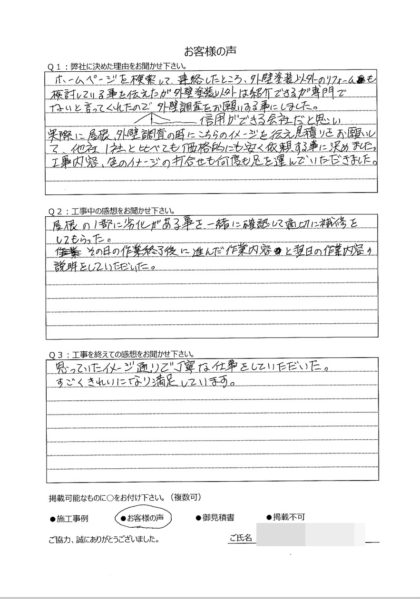 お客様の声
Q1：弊社に決めた理由をお聞かせ下さい。
ホームページを検索して、連絡したところ、外壁塗装以外のリフォームも
検討している事を伝えたが外壁塗装以外は紹介できるが専門で
ないと言ってくれたので外壁調査をお願いする事にしました。
信用ができる会社だと思い
実際に屋根、外壁調査の時にこちらのイメージを伝え見積りをお願いし
て、他社1社と比べても価格的にも安く依頼する事に決めました。
工事内容、色のイメージの打合せも何度も足を運んでいただきました。
Q2：工事中の感想をお聞かせ下さい。
屋根の1部に劣化がある事を一緒に確認して適切に補修を
してもらった。
その日の作業終了後に進んだ作業内容と翌日の作業内容の
説明をしていただいた。
Q3：工事を終えての感想をお聞かせ下さい。
思っていたイメージ通りで丁寧な仕事をしていただいた。
すごくきれいになり満足しています。
掲載可能なものに○をお付け下さい。（複数可）
●施工事例 ●お客様の声 ●御見積書 ●掲載不可
ご協力、誠にありがとうございました。 ご氏名